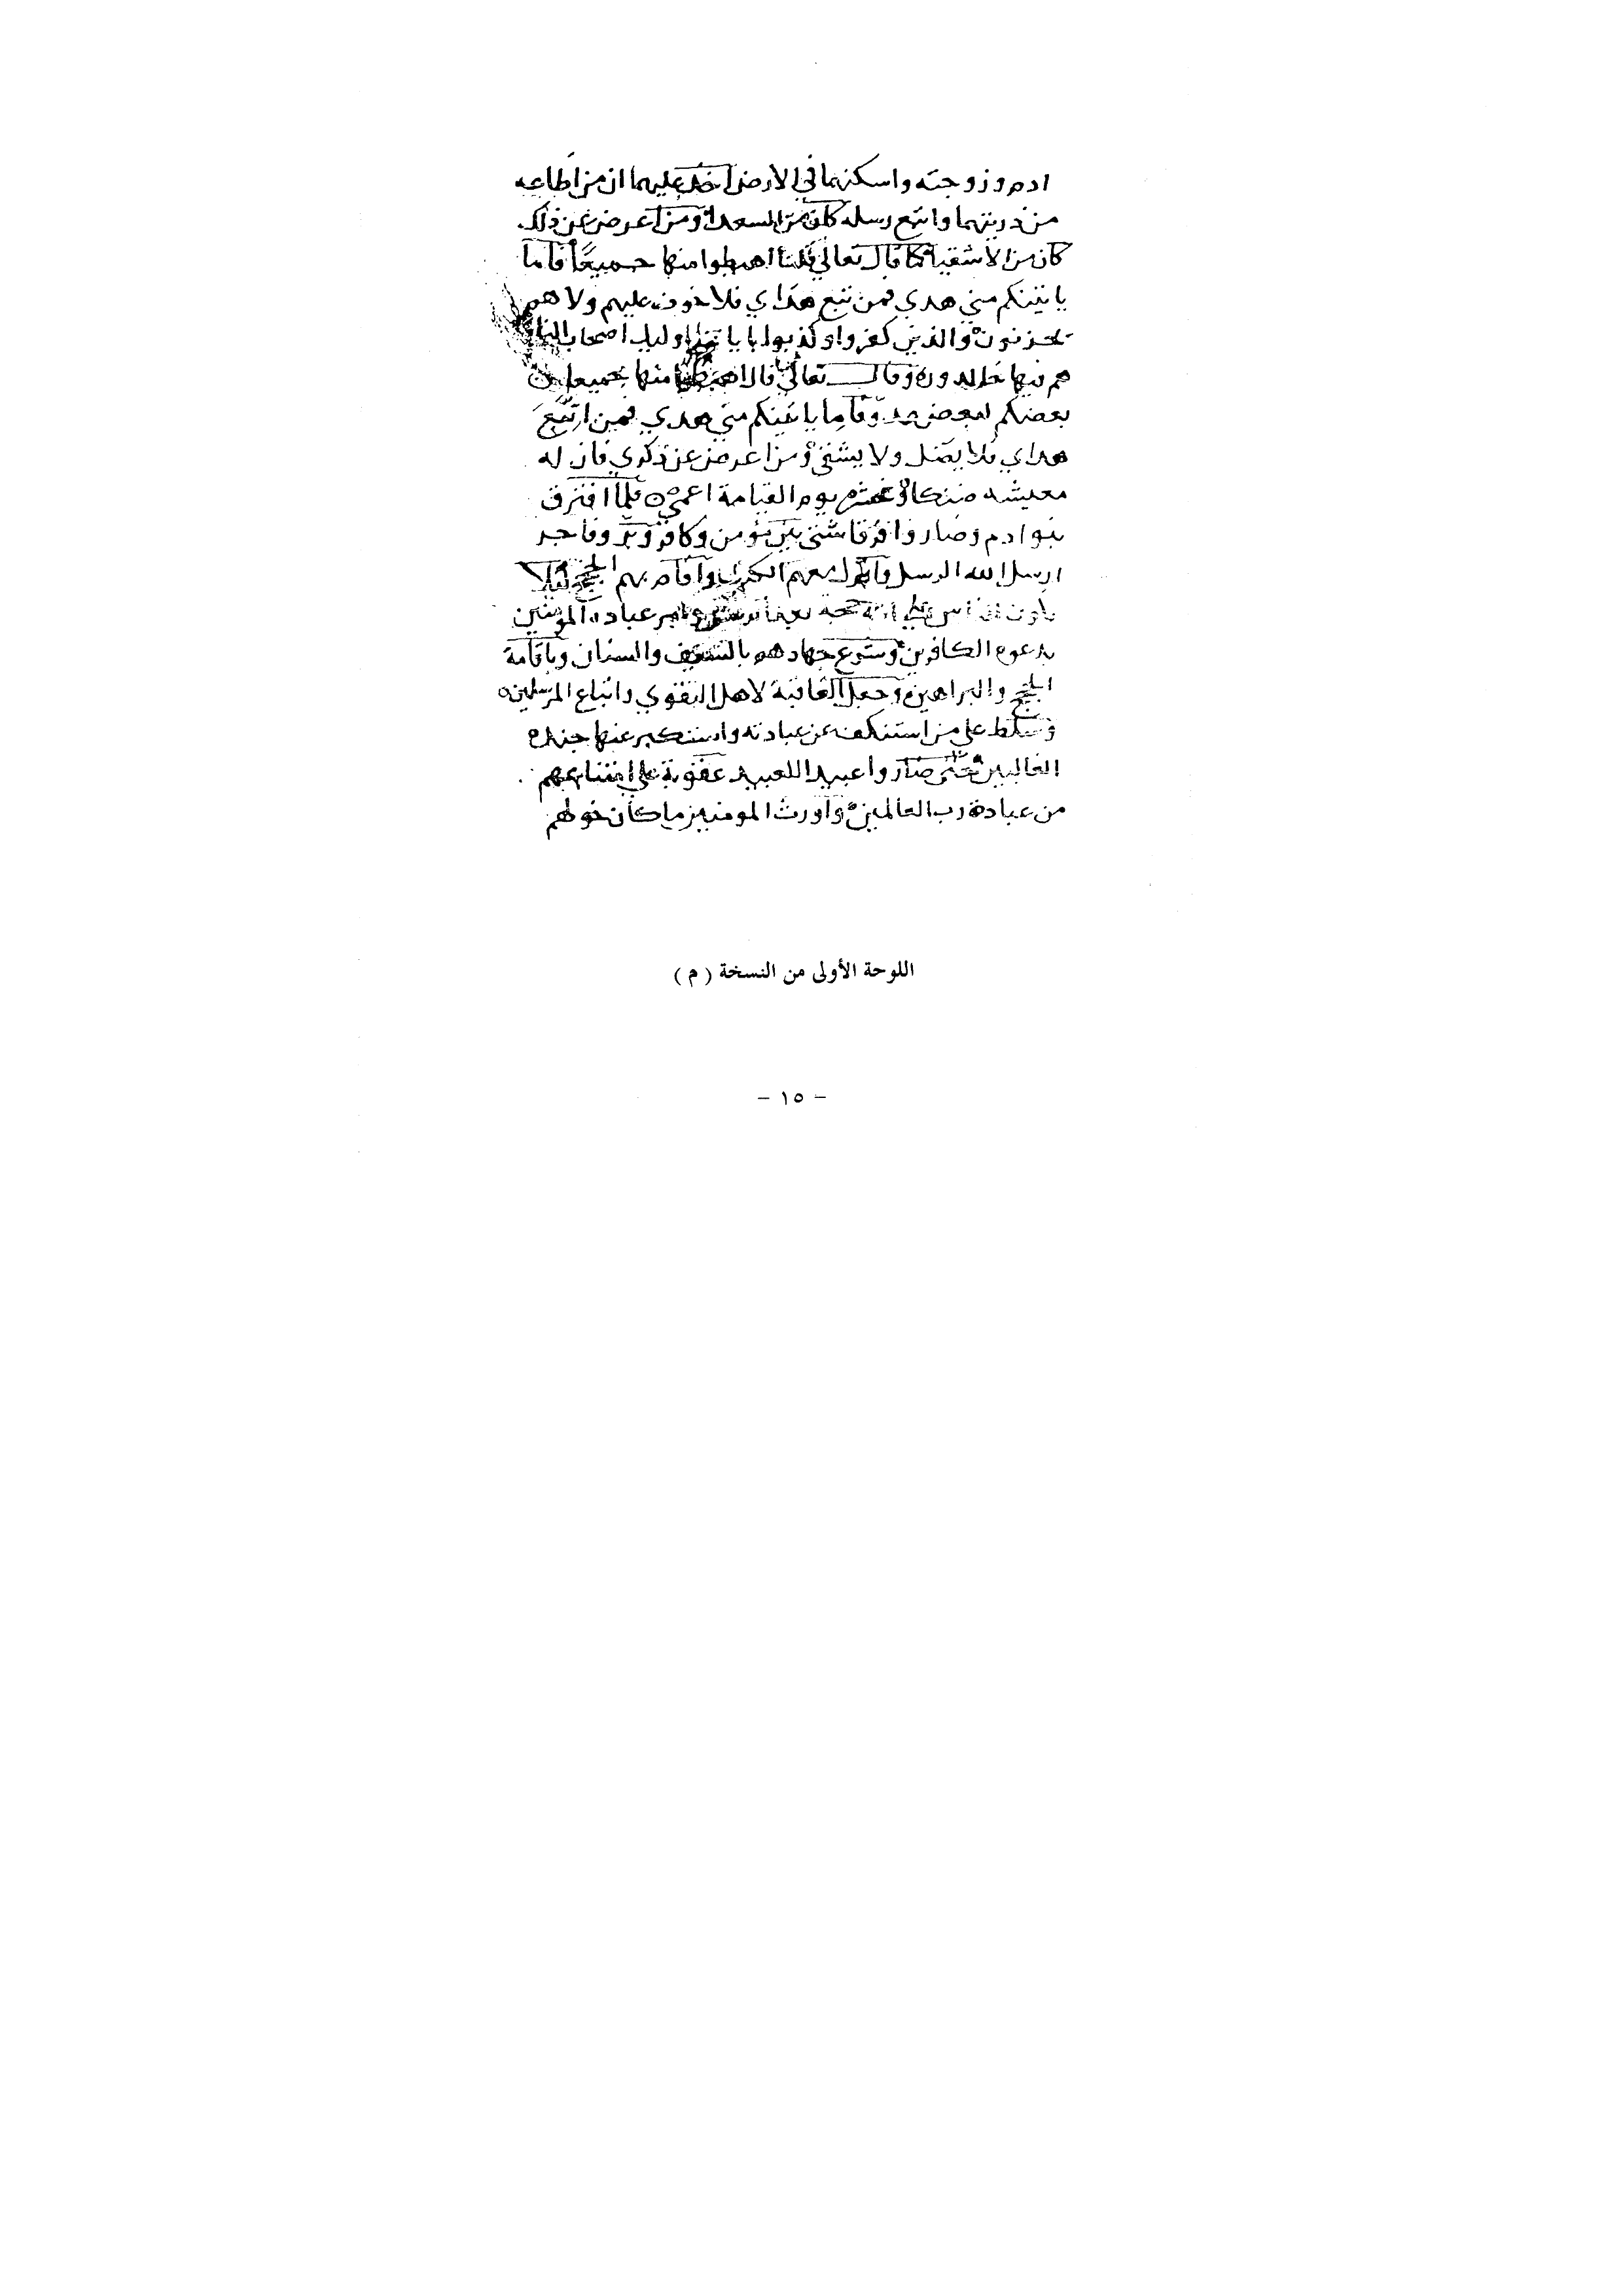 ادم وزوجته واسكنهما في الارض اخذ عليهما ان من اطاعه
من ذريتهما واتبع رسله كان من السعدا ومن اعرض عن ذلك
كان من الاشقيا كما قال تعالي قلنا اهبطوا منها جميعًا فاما
ياتينكم مني هدي فمن تبع هداي فلا خوف عليهم ولا هم
يحزنون والذين كفروا وكذبوا باياتنا اوليك اصحاب النار
هم فيها خالدون وقال تعالي قال اهبطا منها جميعا
بعضكم لبعض عدو فاما ياتينكم مني هدي فمن اتبع
هداي فلا يضل ولا يشقى ومن اعرض عن ذكري فان له
معيشه ضنكا ونحشره يوم القيامة اعمى فلما افترق
بنوا ادم وصاروا فرقا شتى بين مؤمن وكافر وبر وفاجر
ارسل الله الرسل وانزل معهم الكتب واقام بهم الحجج ليلا
يكون للناس علي الله حجة بعد الرسل وامر عباده المؤمنين
بدعوه الكافرين وشرع جهادهم بالسيف والسنان وباقامة
الحجج والبراهين وجعل العاقبة لاهل التقوي واتباع المرسلين
وسلط على من استنكف عن عبادته واستكبر عنها جنده
الغالبين حتى صاروا عبيدا للعبيد عقوبة على امتناعهم
من عبادة رب العالمين واورث المومنين ما كان خولهم
اللوحة الأولى من النسخة ( م )
– ١٥ –